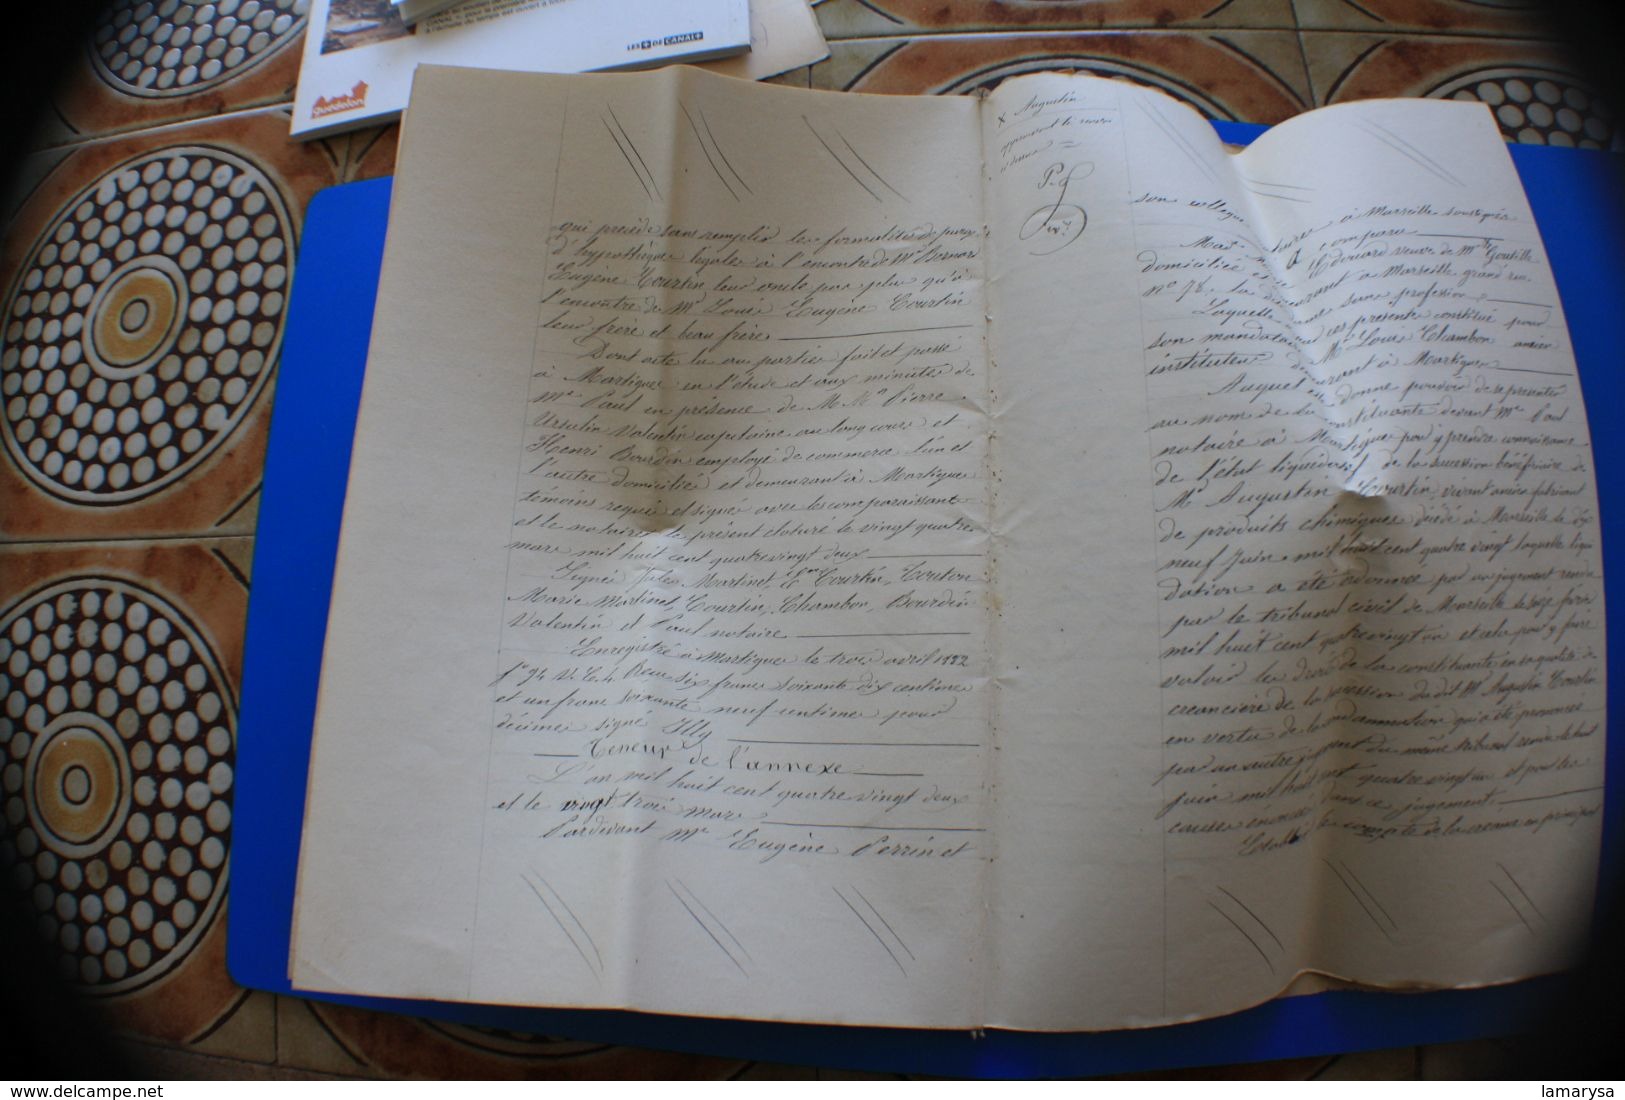 CANAL+, pour la première
LES + DE CANAL+
guedelon
qui précède sans remplir les formalités de purge
d'hypothèques légales à l'encontre de Mr Bernard
Eugène Courtin leur oncle pas plus qu'à
l'encontre de Mr Louis Eugène Courtin
leur frère et beau frère
Dont acte lu aux parties fait et passé
à Martigues en l'étude et aux minutes de
Me Paul en présence de M Mrs Pierre
Ursulin Valentin capitaine au long cours et
Henri Bourdin employé de commerce l'un et
l'autre domiciliés et demeurant à Martigues
témoins requis et signés avec les comparaissants
et le notaire le présent cloturé le vingt quatre
mars mil huit cent quatre vingt deux
Signés Jules Martinet, Courtin, Couton
Marie Martinet, Courtin, Chambon, Bourdin
Valentin et Paul notaire
Enregistré à Martigues le trois avril 1882
f° 94 V. C. 4 Reçu six francs soixante dix centimes
et un franc soixante neuf centimes pour
décimes signé Illy
Teneur de l'annexe
L'an mil huit cent quatre vingt deux
et le vingt trois mars
Pardevant Me Eugène Perrin et
x Augustin
approuvant le renvoi
ci dessus
son collègue notaires à Marseille soussignés
A comparu
Edouard veuve de Mr Goutille
domiciliée et demeurant à Marseille grand rue
n° 78 sans profession
Laquelle a par ces présentes constitué pour
son mandataire Mr Louis Chambon ancien
instituteur demeurant à Martigues
Auquel elle donne pouvoir de représenter
au nom de la constituante devant Me Paul
notaire à Martigues pour y prendre connaissance
de l'état liquidatif de la succession bénéficiaire de
Mr Augustin Courtin, vivant ancien fabricant
de produits chimiques décédé à Marseille le dix
neuf Juin mil huit cent quatre vingt laquelle liqui
dation a été ordonnée par un jugement rendu
par le tribunal civil de Marseille le seize Juin
mil huit cent quatre vingt un et celui pour y faire
valoir les droits de la constituante en sa qualité de
creancière de la succession du dit Mr Augustin Courtin
en vertu de la condamnation qui a été prononcée
par un autre jugement du même tribunal rendu le huit
juin mil huit cent quatre vingt un et pour les
causes énoncées dans ce jugement
Etablir le compte de la creance en principal
lamarysa